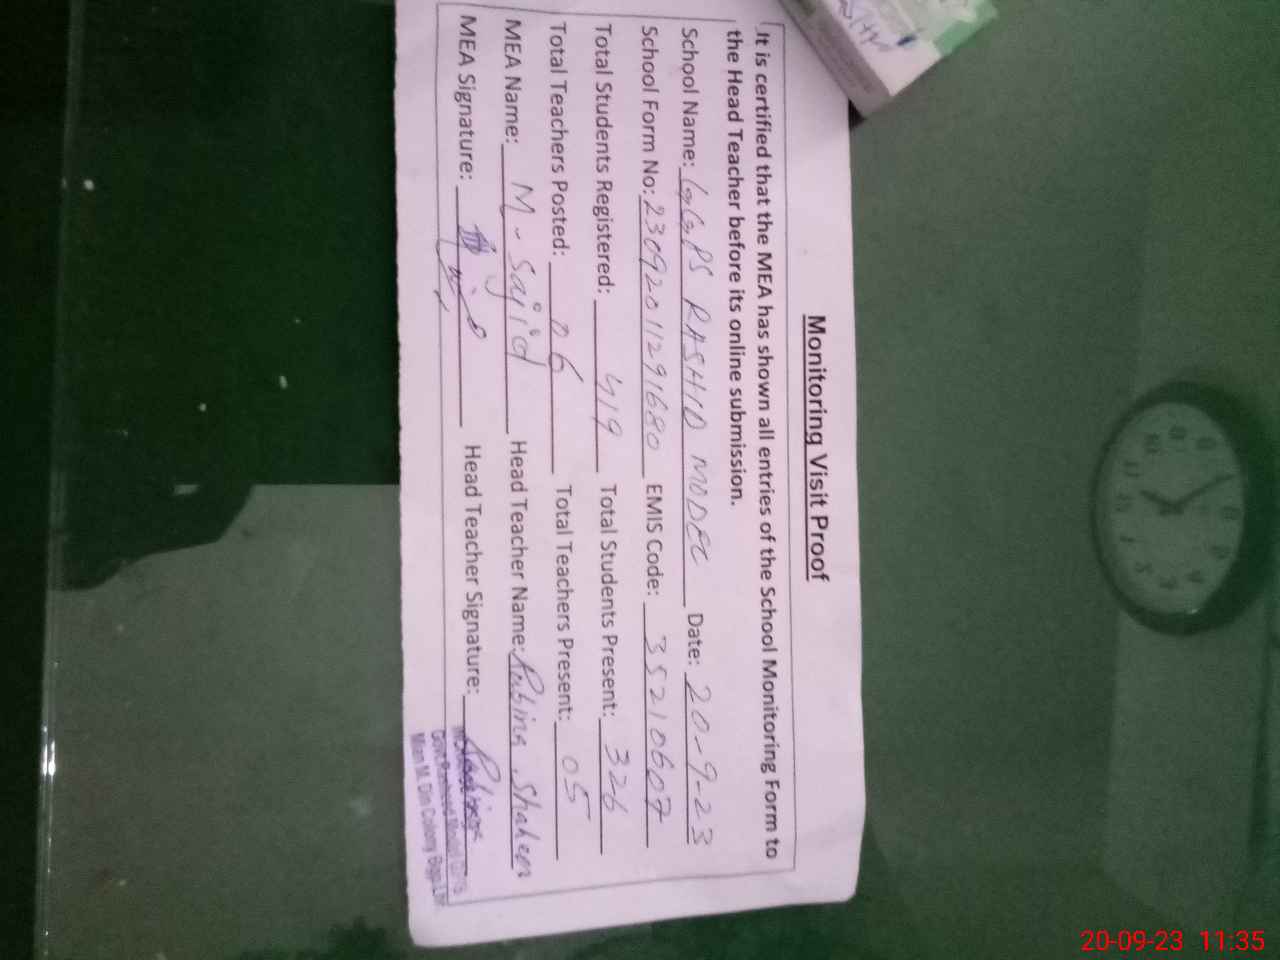 Monitoring Visit Proof
It is certified that the MEA has shown all entries of the School Monitoring Form to
the Head Teacher before its online submission.
School Name: GGPS RASHID MODEL Date: 20-9-23
School Form No: 23092011291680 EMIS Code: 35210607
Total Students Registered: 419 Total Students Present: 326
Total Teachers Posted: 06 Total Teachers Present: 05
MEA Name: M-Sajid Head Teacher Name: Rubina Shaheen
MEA Signature: Head Teacher Signature: Rubina
Mian M. Din Colony
20-09-23 11:35